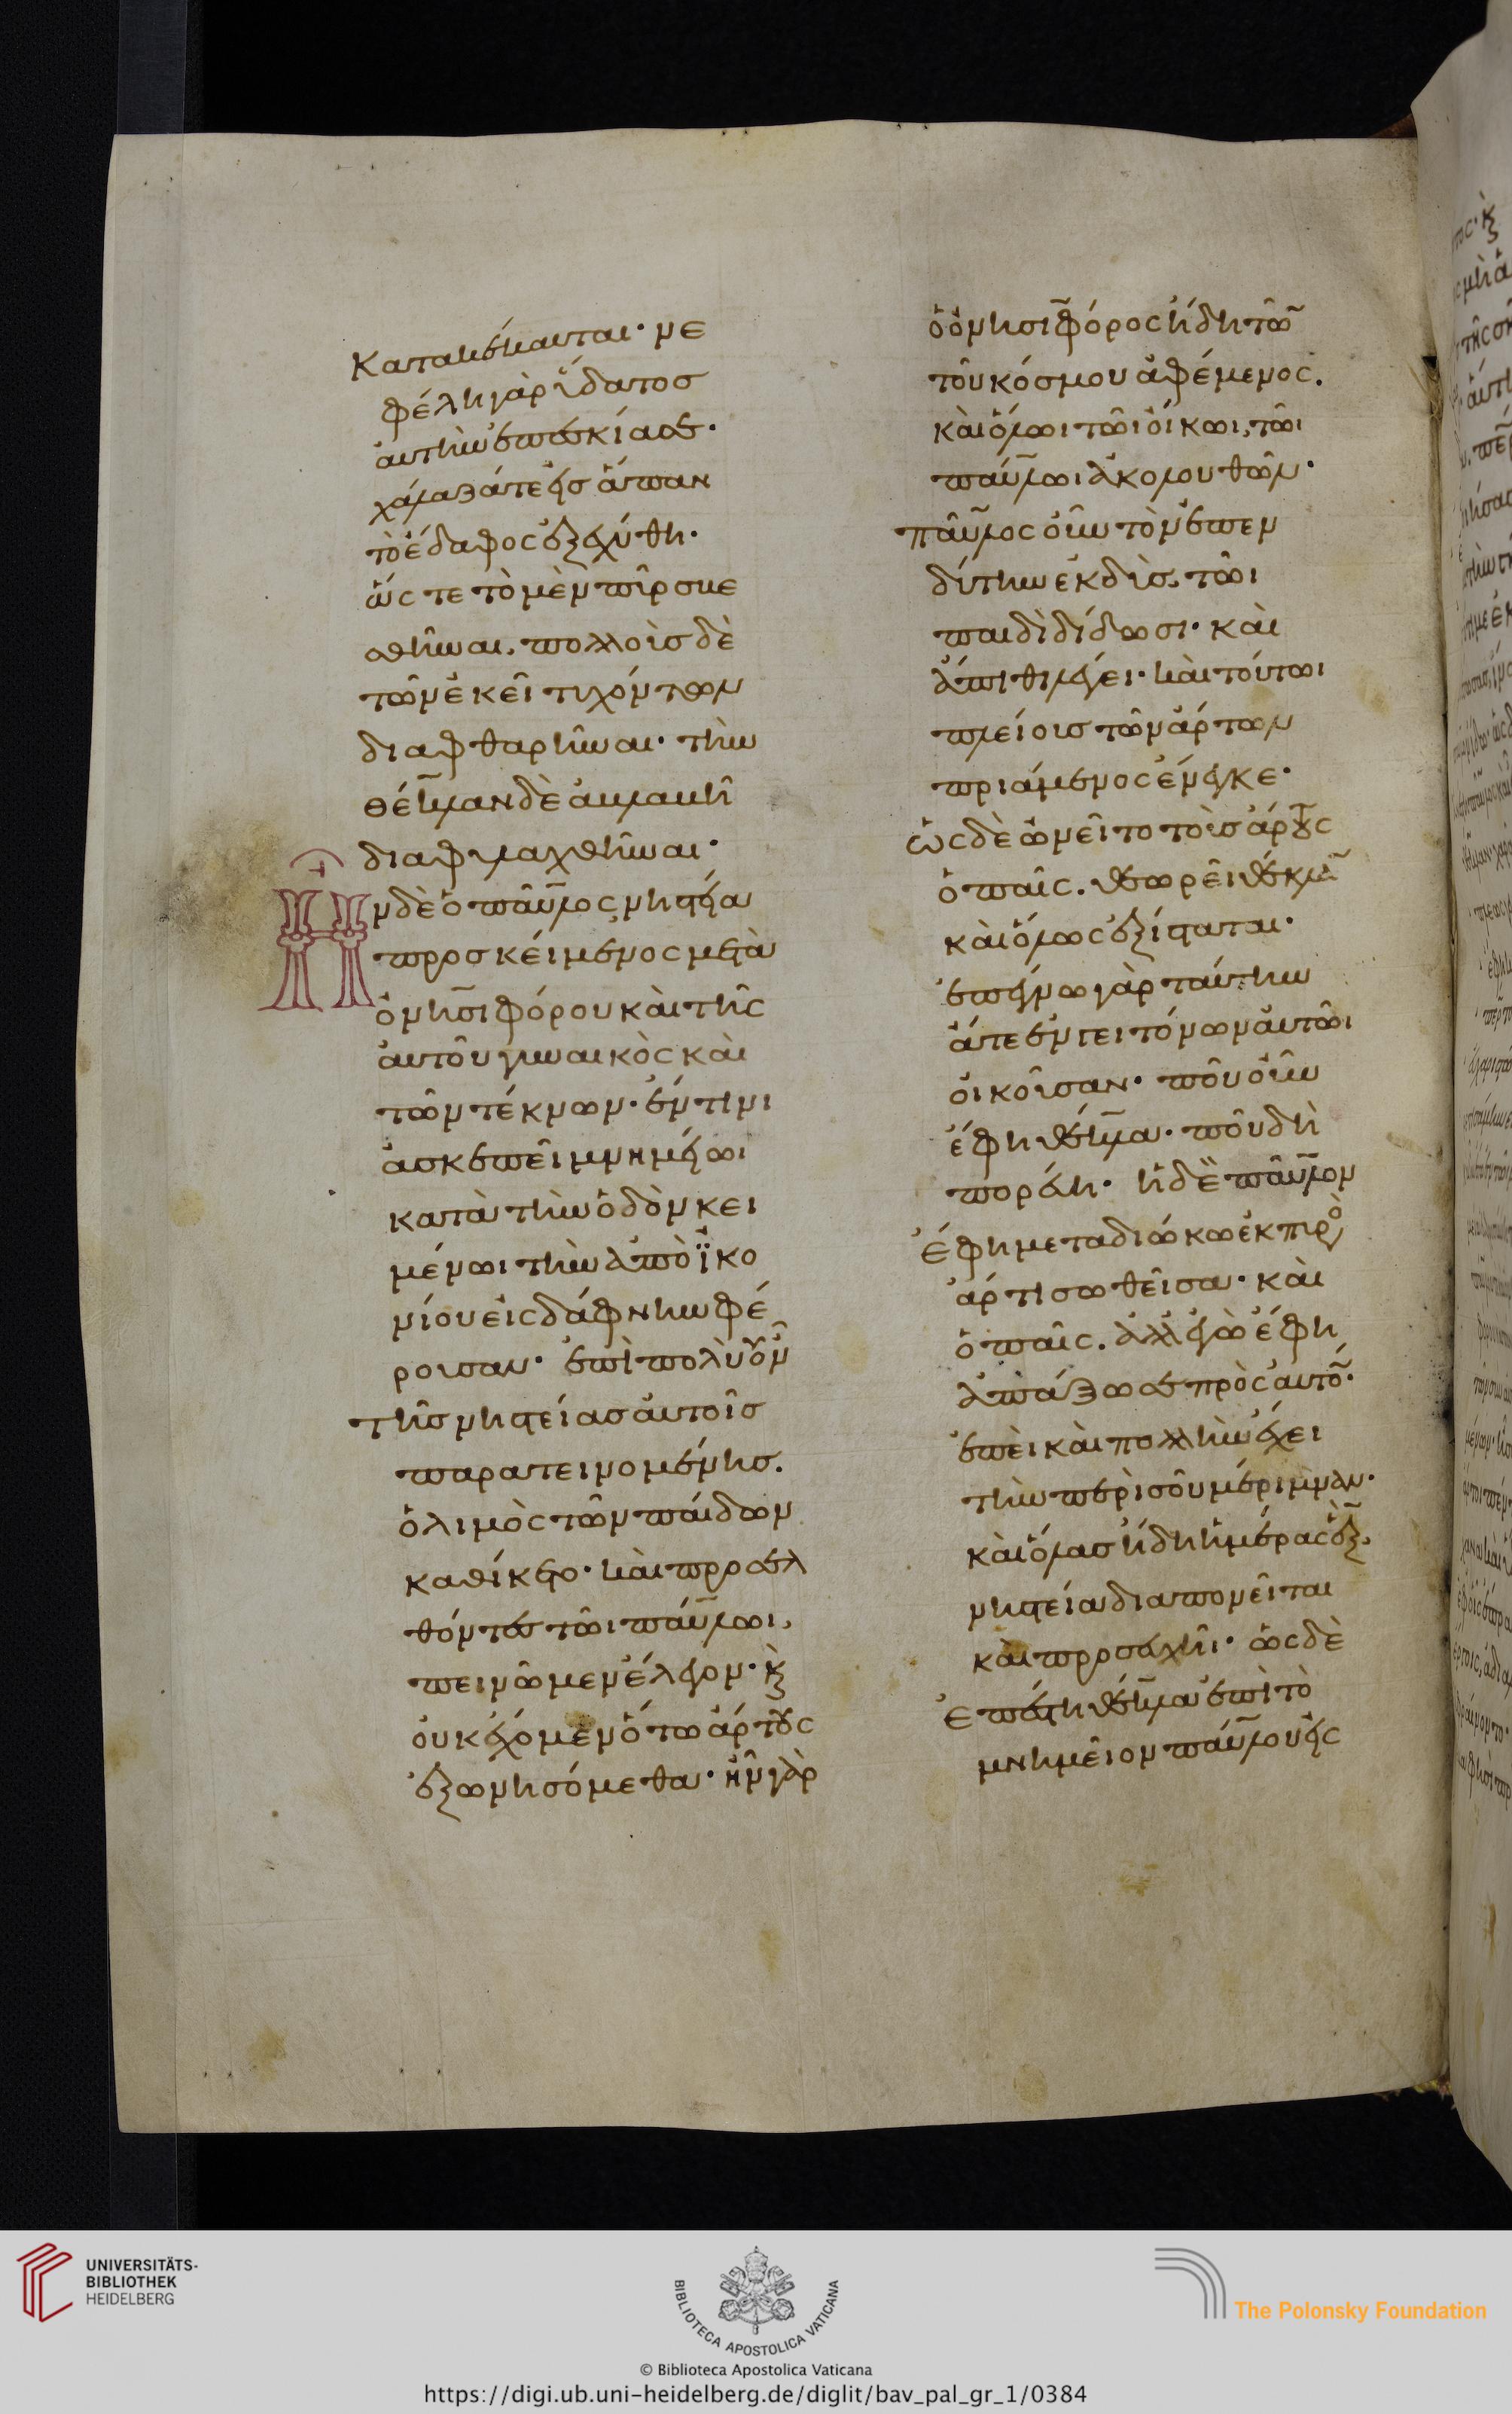 Κατακέκαυται· νε
φέλη γὰρ ὕδατος
αὐτὴν ἐπεσκίασε·
χάλαζά τε εἰς ἅπαν
τὸ ἔδαφος ἐξεχύθη·
ὥς τε τὸ μὲν πῦρ σβε
σθῆναι, πολλοὺς δὲ
τῶν ἐκεῖ τυχόντων
διαφθαρῆναι· τὴν
θέκλαν δὲ ἀβλαβῆ
διαφυλαχθῆναι·
Ἦν δὲ ὁ παῦλος νηστεία
προσκείμενος μετὰ
ὀνησιφόρου καὶ τῆς
αὐτοῦ γυναικὸς καὶ
τῶν τέκνων· ἔν τινι
ἀσκεπεῖ μνημείωι
κατὰ τὴν ὁδὸν κει
μένωι τὴν ἀπὸ ἰκο
νίου εἰς δάφνην φέ
ρουσαν· ἐπὶ πολὺ οὖν
τῆς νηστείας αὐτοῖς
παρατεινομένης.
ὁ λιμὸς τῶν παίδων
καθίκετο· καὶ προσελ
θόντες τῶι παύλωι,
πεινῶμεν ἔλεγον· κ(αὶ)
οὐκ ἔχομεν ὅτω ἄρτους
ἐξωνησόμεθα· ἦν γὰρ
ὁ ὀνησιφόρος ἤδη τῶν
τοῦ κόσμου ἀφέμενος.
καὶ ὅλωι τῶι οἴκωι, τῶι
παύλωι ἀκολουθῶν·
παῦλος οὖν τὸν ἐπεν
δύτην ἐκδὺς, τῶι
παιδὶ δίδωσι· καὶ
ἄπιθι λέγει· καὶ τούτωι
πλείους τῶν ἄρτων
πριάμενος ἔνεγκε·
ὡς δὲ ὠνεῖτο τοὺς ἄρτους
ὁ παῖς. θεωρεῖ θέκλαν
καὶ ὅλως ἐξίσταται·
ἐπέγνω γὰρ ταύτην
ἅτε ἐν γειτόνων αὐτῶι
οἰκοῦσαν· ποῦ οὖν
ἔφη θέκλα· ποῦ δὴ
πορεύη· ἡ δὲ παῦλον
ἔφη μεταδιώκω ἐκ πυρὸ(ς)
ἄρτι σωθεῖσα· καὶ
ὁ παῖς. ἀλλ' ἐγὼ ἔφη,
ἀπάξω σε πρὸς αὐτόν·
ἐπεὶ καὶ πολλὴν ἔχει
τὴν περὶ σοῦ μέριμναν·
καὶ ὅλας ἤδη ἡμέρας ἓξ,
νηστεία διαπονεῖται
καὶ προσευχῆι· ὡς δὲ
ἐπέστη θέκλα ἐπὶ τὸ
μνημεῖον παύλου εἰς
UNIVERSITÄTS-
BIBLIOTHEK
HEIDELBERG
BIBLIOTECA APOSTOLICA VATICANA
The Polonsky Foundation
© Biblioteca Apostolica Vaticana
https://digi.ub.uni-heidelberg.de/diglit/bav_pal_gr_1/0384